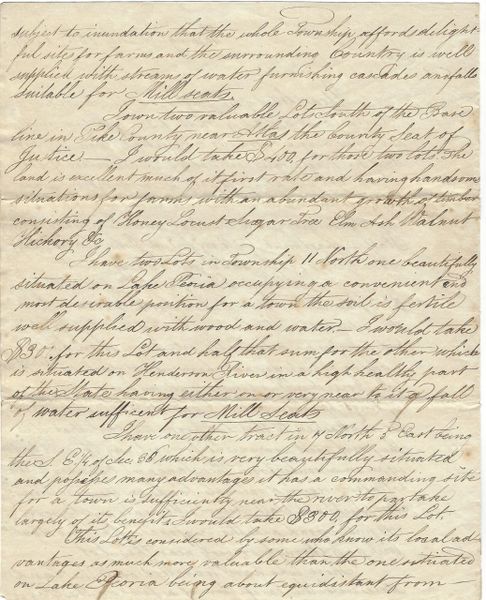 subject to inundation that the whole Township affords delight-
ful sites for farms and the surrounding Country is well
supplied with streams of water furnishing cascades and falls
suitable for Mill seats.
I own two valuable Lots South of the Base
line in Pike County near Atlas the County Seat of
Justice — I would take $400, for those two lots. The
land is excellent much of it first rate and having handsome
situations for farms with an abundant growth of timber
consisting of Honey Locust Sugar Tree Elm Ash Walnut
Hickory &c
I have two Lots in Township 11 North one beautifully
situated on Lake Peoria occupying a convenient and
most desirable position for a town the soil is fertile
well supplied with wood and water — I would take
for this Lot and half that sum for the other which
is situated on Henderson River in a high healthy part
of the State having either on or very near to it a fall
of water sufficient for Mill Seats
I have one other tract in 4 North 5 East being
the S. E. 1/4 of Sec. which is very beautifully situated
and possesses many advantages it has a commanding site
for a town is sufficiently near the river to partake
largely of its benefits I would take $300, for this Lot.
This Lot is considered by some who know its local ad-
vantages as much more valuable than the one situated
on Lake Peoria being about equidistant from —